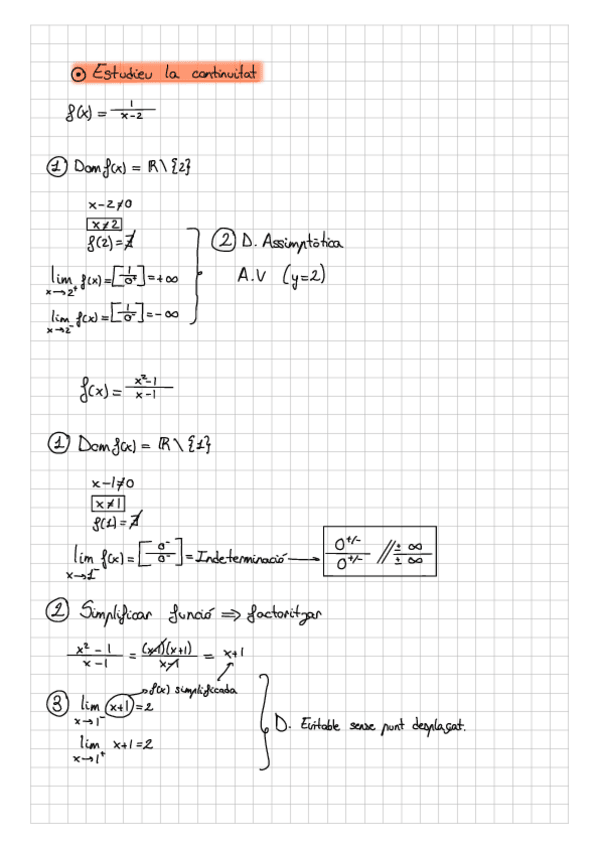 ⊙ Estudieu la continuitat
f(x) = 1/(x-2)
① Dom f(x) = ℝ \ {2}
x-2≠0
x≠2
f(2) = ∄
② D. Assimptòtica
lim x→2⁺ f(x) = [1/0⁺] = +∞
A.V (y=2)
lim x→2⁻ f(x) = [1/0⁻] = -∞
f(x) = (x²-1)/(x-1)
① Dom f(x) = ℝ \ {1}
x-1≠0
x≠1
f(1) = ∄
lim x→1⁻ f(x) = [0⁻/0⁻] = Indeterminació → 0^(+/-)/0^(+/-) // ±∞/±∞
② Simplificar funció ⇒ factoritzar
(x² - 1)/(x - 1) = (x-1)(x+1)/(x-1) = x+1
f(x) simplificada
③ lim x→1⁻ (x+1) = 2
D. Evitable sense punt desplaçat.
lim x→1⁺ x+1 = 2